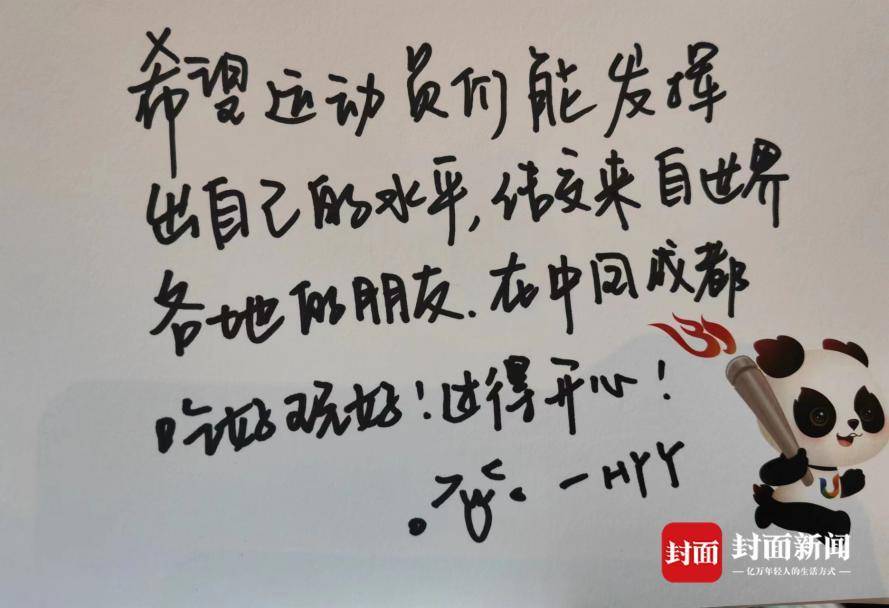 希望运动员们能发挥
出自己的水平，结交来自世界
各地的朋友.在中国成都
吃好玩好！过得开心！
—HYY
封面
封面新闻
—亿万年轻人的生活方式—